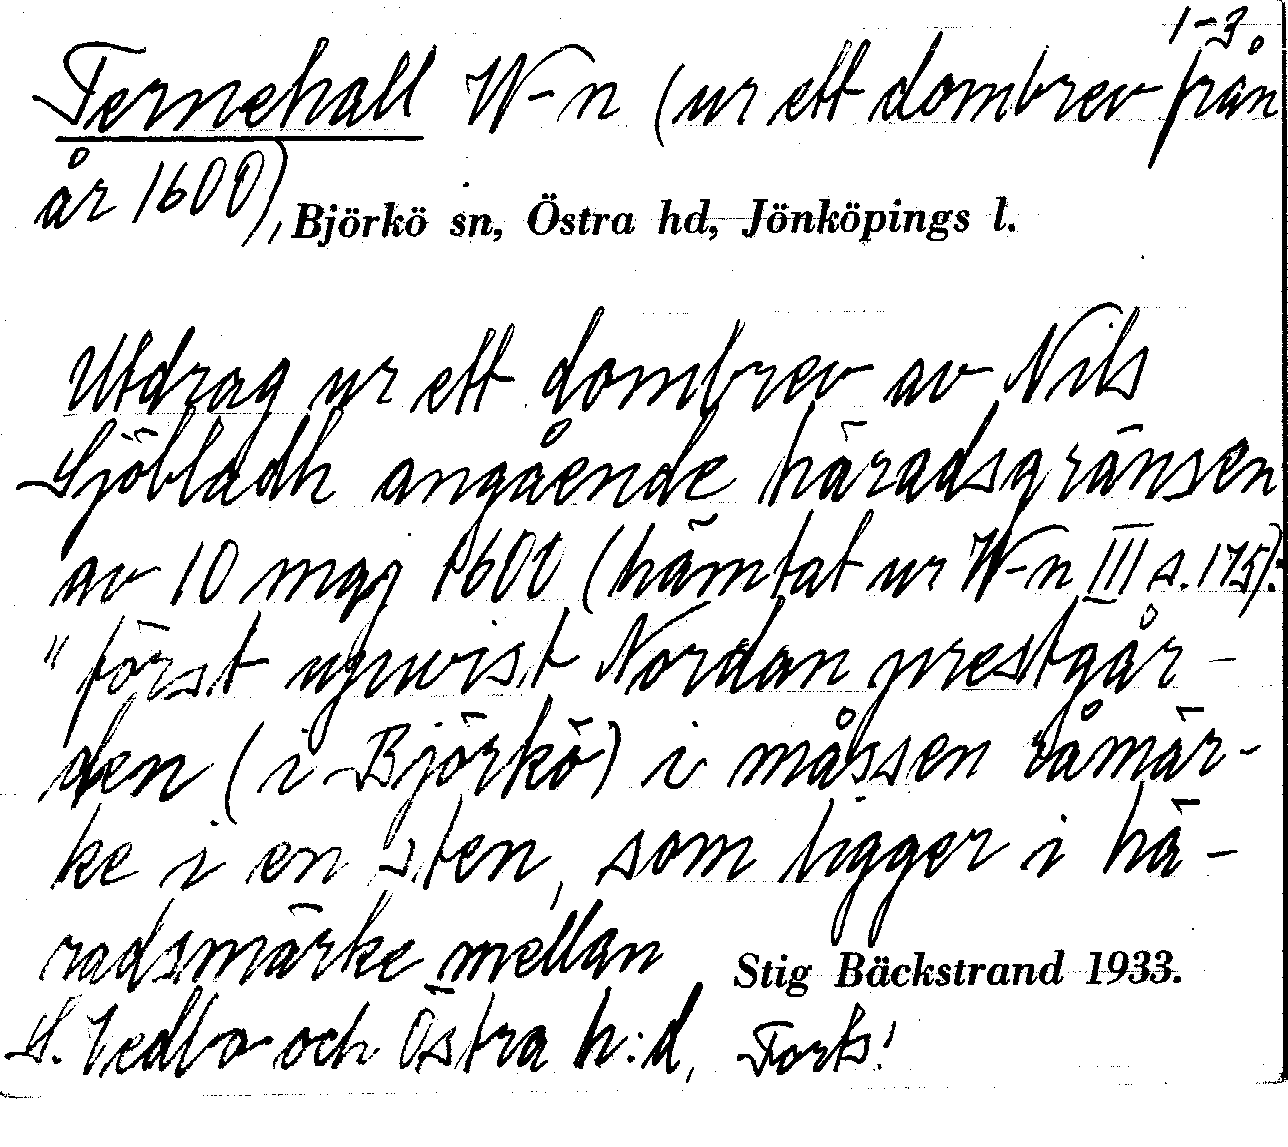 1-3.
Fernehall W-n (ur ett dombrev från
år 1600), Björkö sn, Östra hd, Jönköpings l.
Utdrag ur ett dombrev av Nils
Sjöbladh angående häradsgränsen
av 10 maj 1600 (hämtat ur W-n III s. 175):
" först uppvist Nordan prestgår-
den (i Björkö) i måssen råmär-
ke i en sten, som ligger i hä-
radsmärke mellan
Stig Bäckstrand 1933.
S. Vedbo och Östra h:d, Forts!